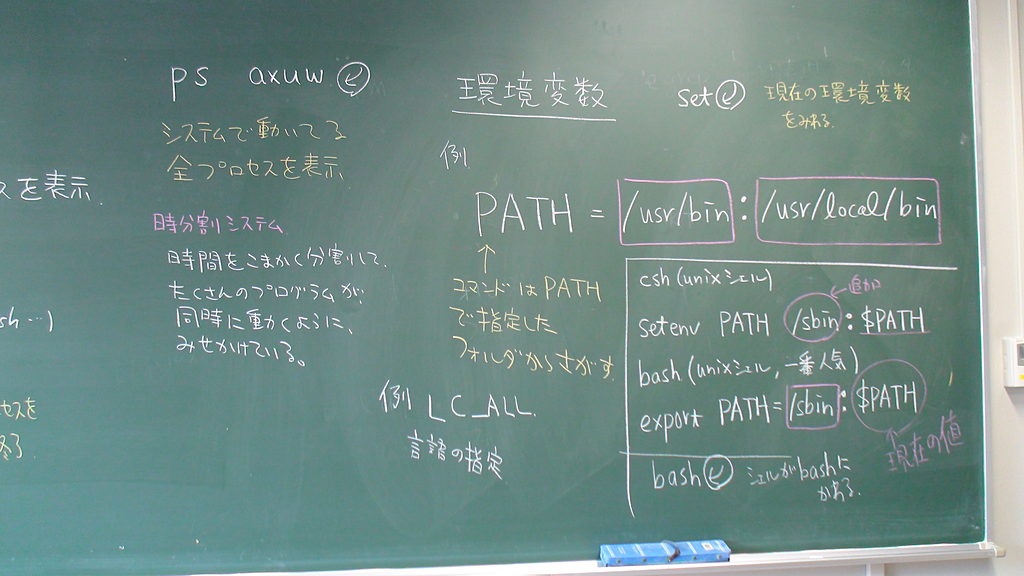 スを表示.
sh…)
セスを
ps axuw ⓔ
システムで動いてる
全プロセスを表示
時分割システム
時間をこまかく分割して、
たくさんのプログラムが
同時に動くように、
みせかけている。
環境変数
set ⓔ
現在の環境変数
をみれる.
例
PATH = /usr/bin : /usr/local/bin
↑
コマンドはPATH
で指定した
フォルダからさがす.
例 LC_ALL.
言語の指定
csh (unixシェル)
追加
setenv PATH /sbin : $PATH
bash (unixシェル, 一番人気)
export PATH=/sbin : $PATH
現在の値
bash ⓔ シェルがbashに
かわる.